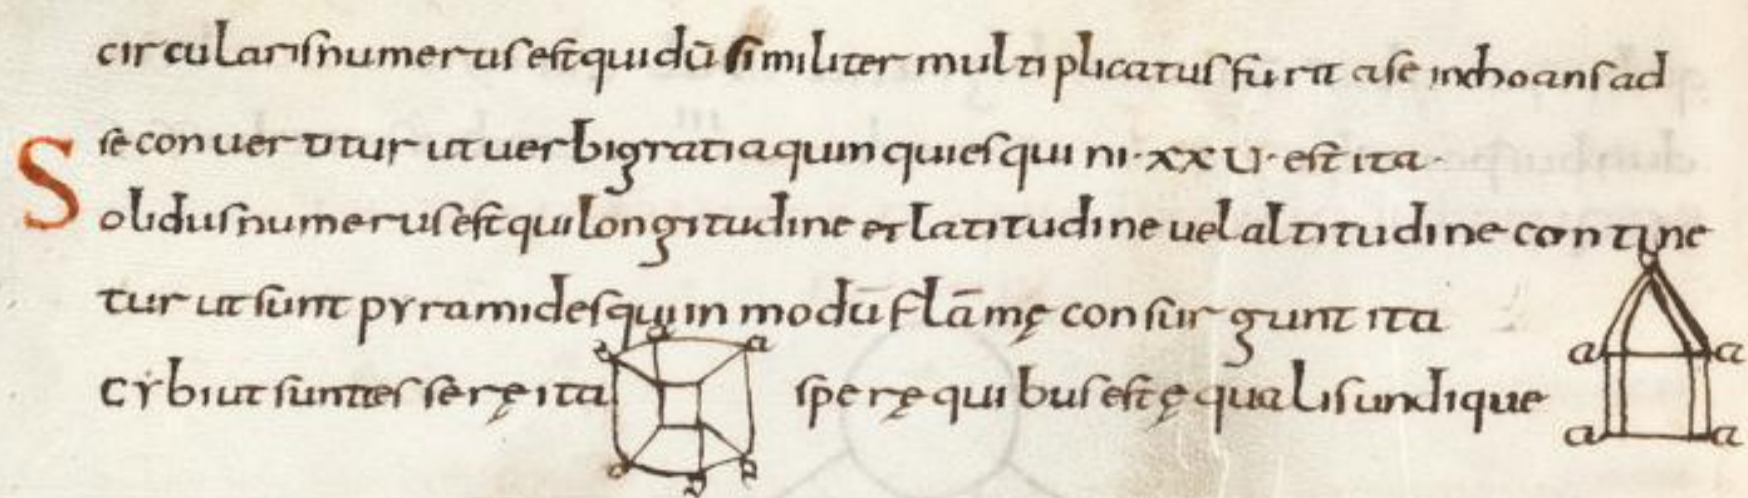 circularis numerus est qui dū similiter multiplicatus furit a se inchoans ad
se convertitur ut verbi gratia quinquies quini · xxv · est ita ·
Solidus numerus est qui longitudine et latitudine vel altitudine contine
tur ut sunt pyramides qui in modū flāmę consurgunt ita
cybi ut sunt tesserę ita sperę quibus est ęqualis undique
a a
a a
a